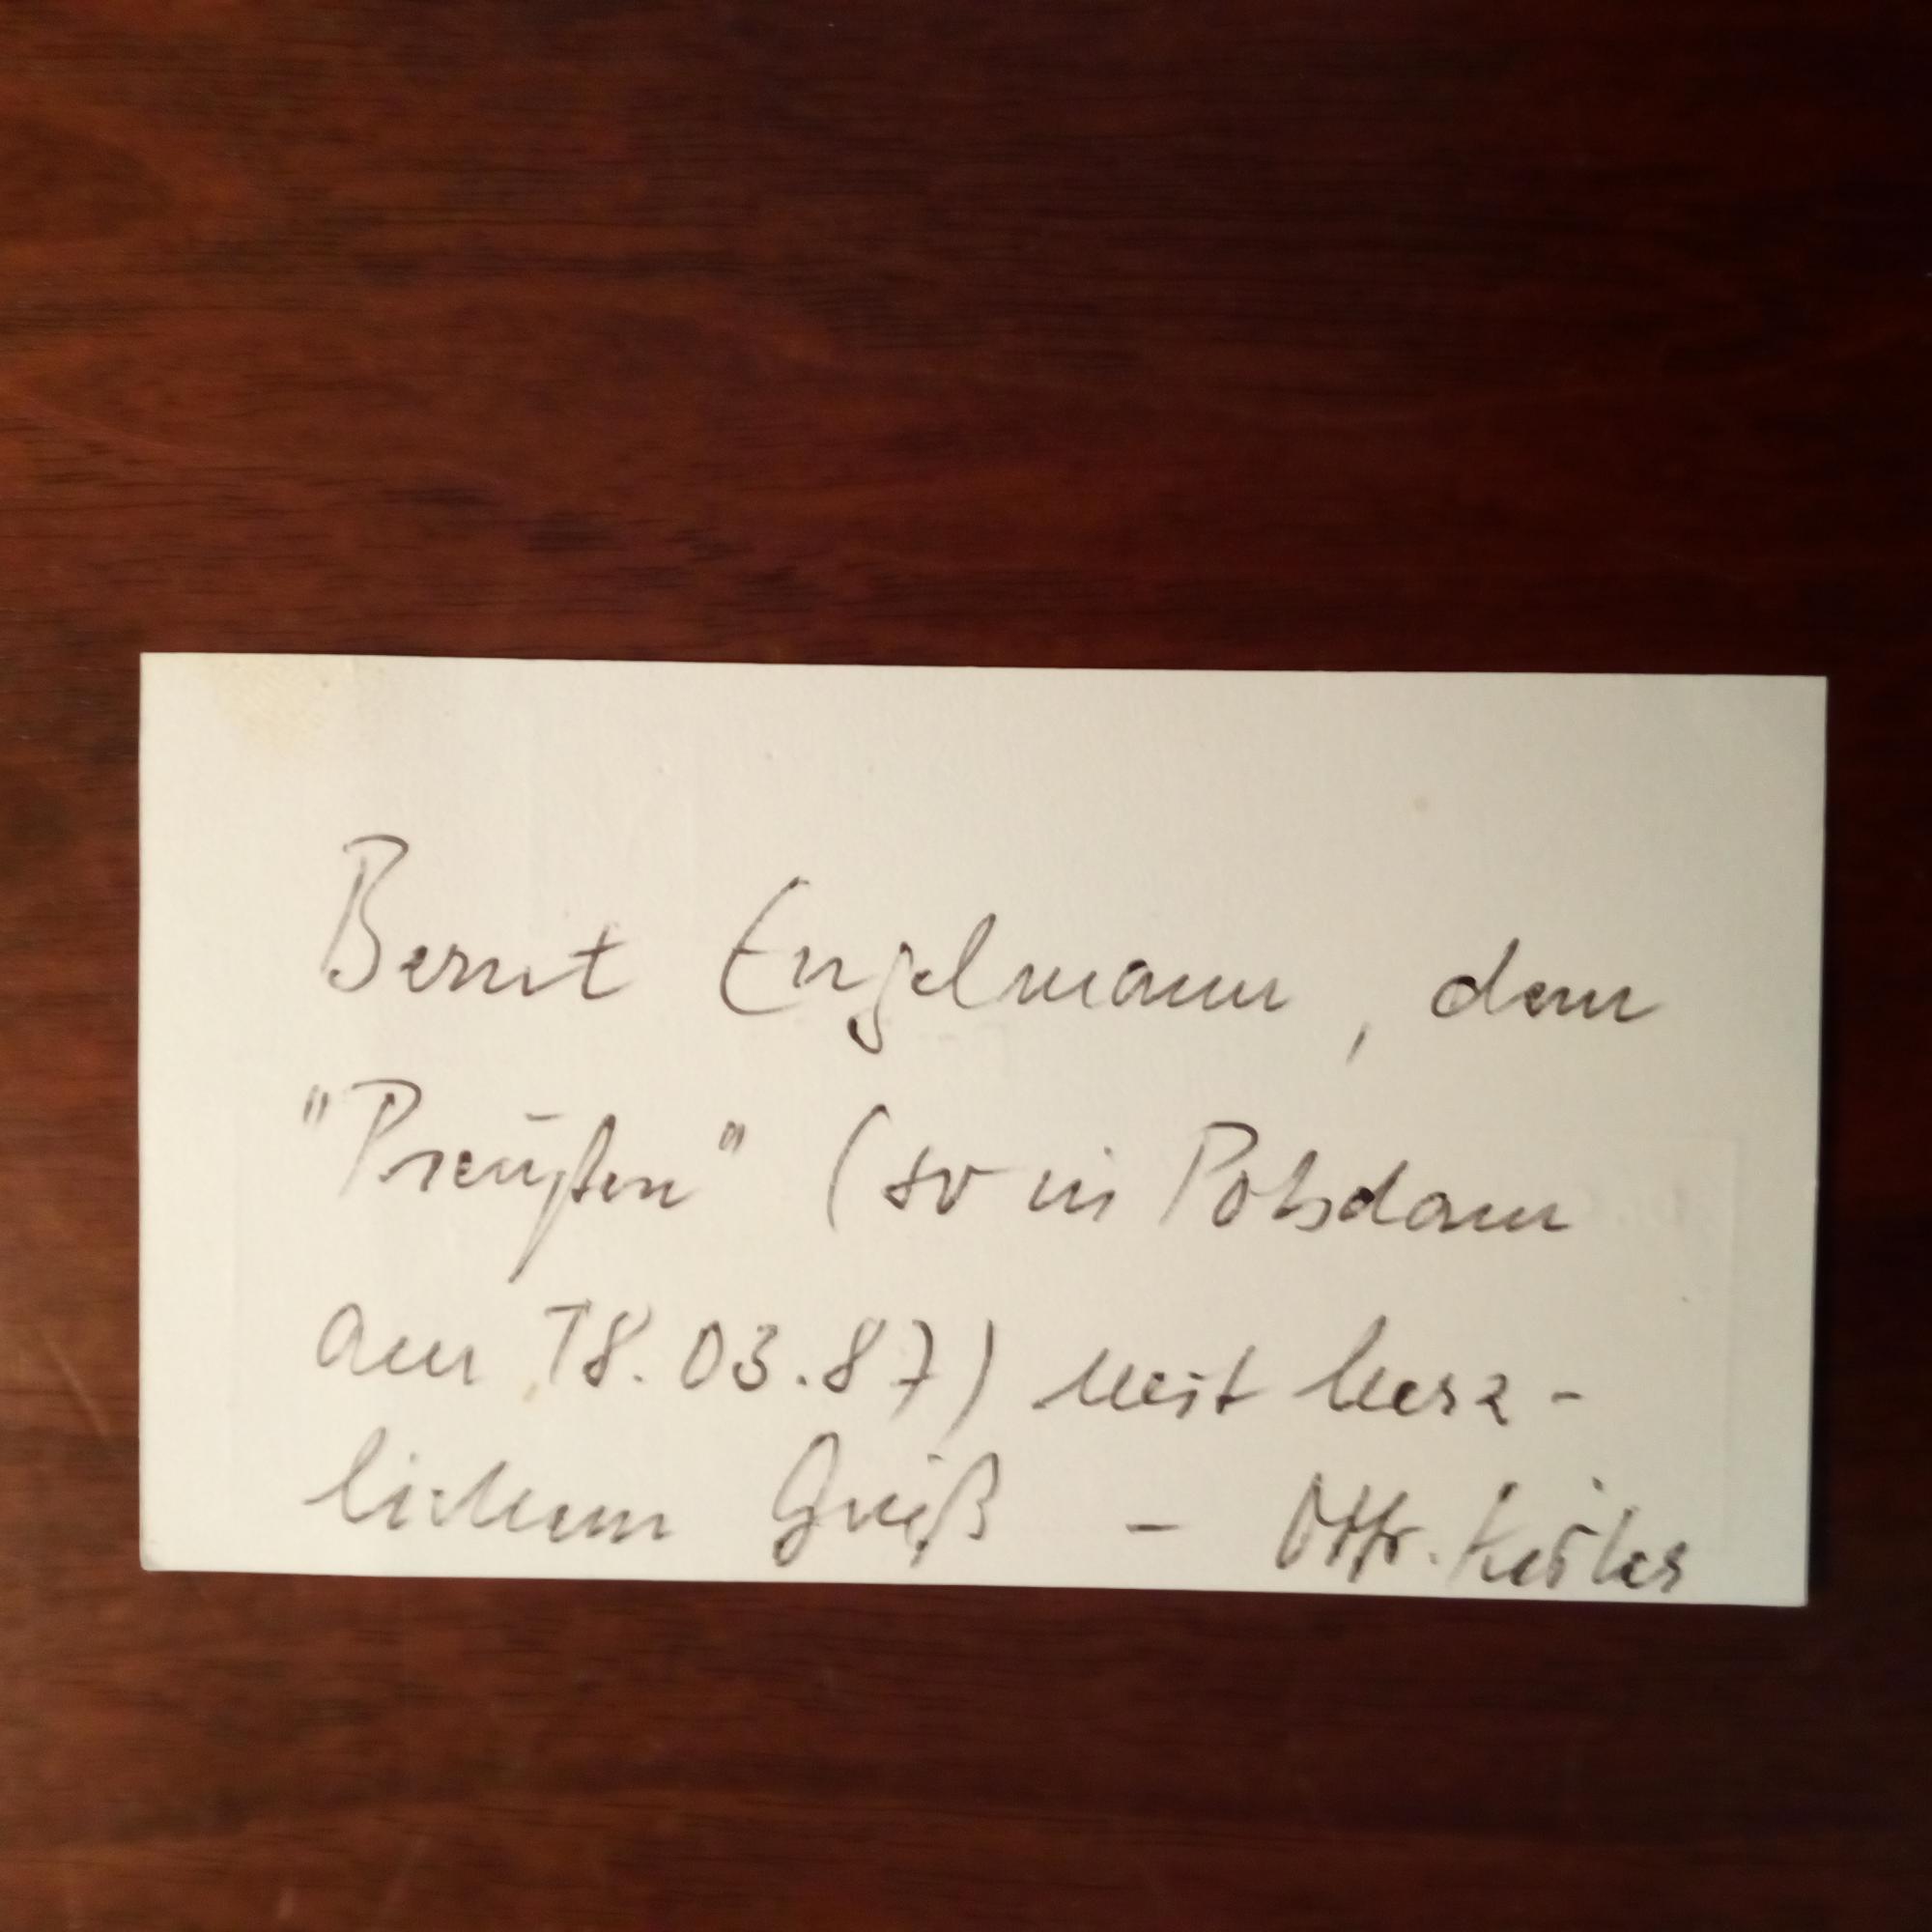 Bernt Engelmann, dem
"Preußen" (so in Potsdam
am 18.03.87) mit herz-
lichem Gruß –